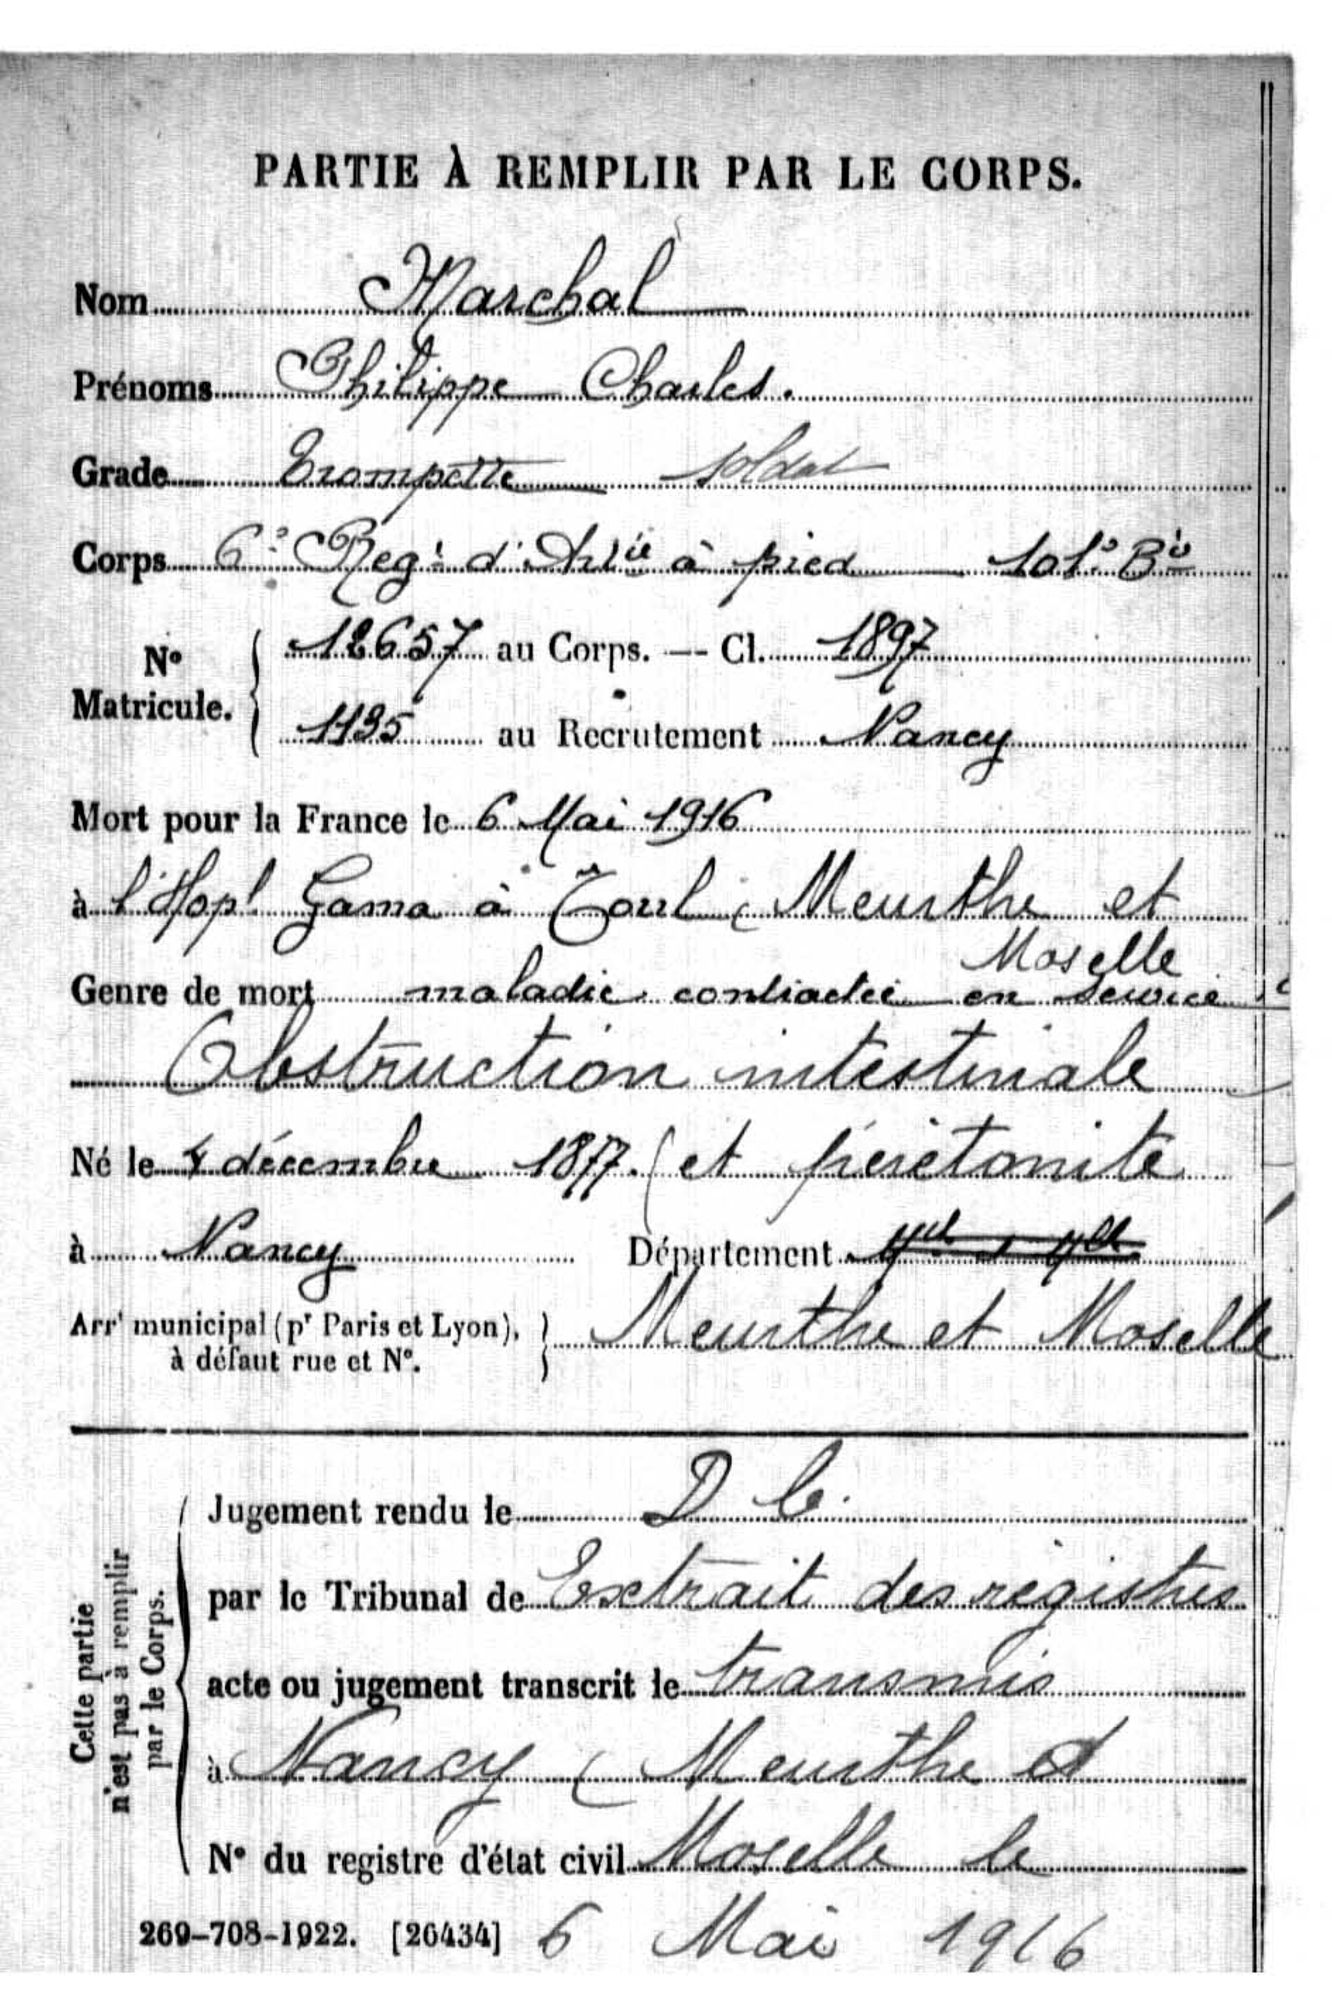 PARTIE À REMPLIR PAR LE CORPS.
Nom Marchal
Prénoms Philippe Charles.
Grade Trompette soldat
Corps 6e Regt d'Artie à pied 101e Bie
No Matricule. 12657 au Corps. — Cl. 1897
1195 au Recrutement Nancy
Mort pour la France le 6 Mai 1916
à l'Hopl Gama à Toul (Meurthe et
Moselle
Genre de mort maladie contractée en service
Obstruction intestinale
Né le 4 décembre 1877. (et péretonite
à Nancy Département Mthe et Mlle
Arrt municipal (pr Paris et Lyon), à défaut rue et No. Meurthe et Moselle
Cette partie n'est pas à remplir par le Corps.
Jugement rendu le D C.
par le Tribunal de Extrait des registres
acte ou jugement transcrit le transmis
à Nancy (Meurthe et
No du registre d'état civil Moselle le
269-708-1922. [26434] 6 Mai 1916